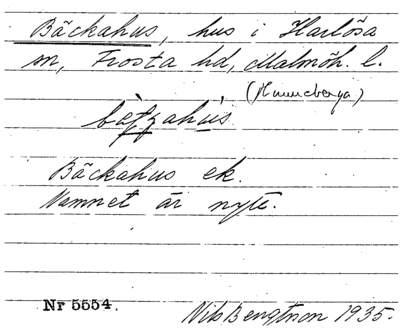 Bäckahus, hus i Harlösa
sn, Frosta hd, Malmöh. l.
(Hunneberga)
Bäckahus ek.
Namnet är nytt.
Nr 5554.
Nils Bengtson 1935.